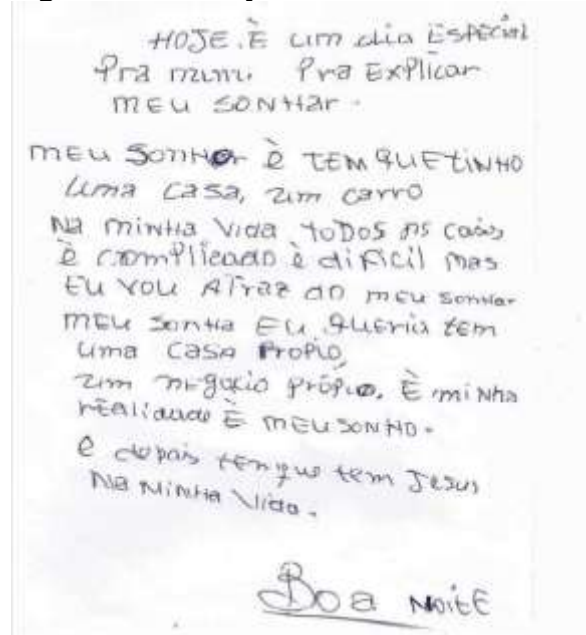 HOJE. È um dia EspEcial
Pra mim. Pra Explicar
mEu SONHar.
mEu SonHor è TEM QUETiNHO
uma casa, um carro
Na minha vida toDos as casos
è complicado è dificil mas
Eu vou ATraz do meu sonhar
mEu sonha Eu queria tem
uma CASA PropiO
um negocio própio. È minha
rEalidade È mEu SONHO.
e depois ten que tem Jesus
Na Minha Vida.
Boa NoitE